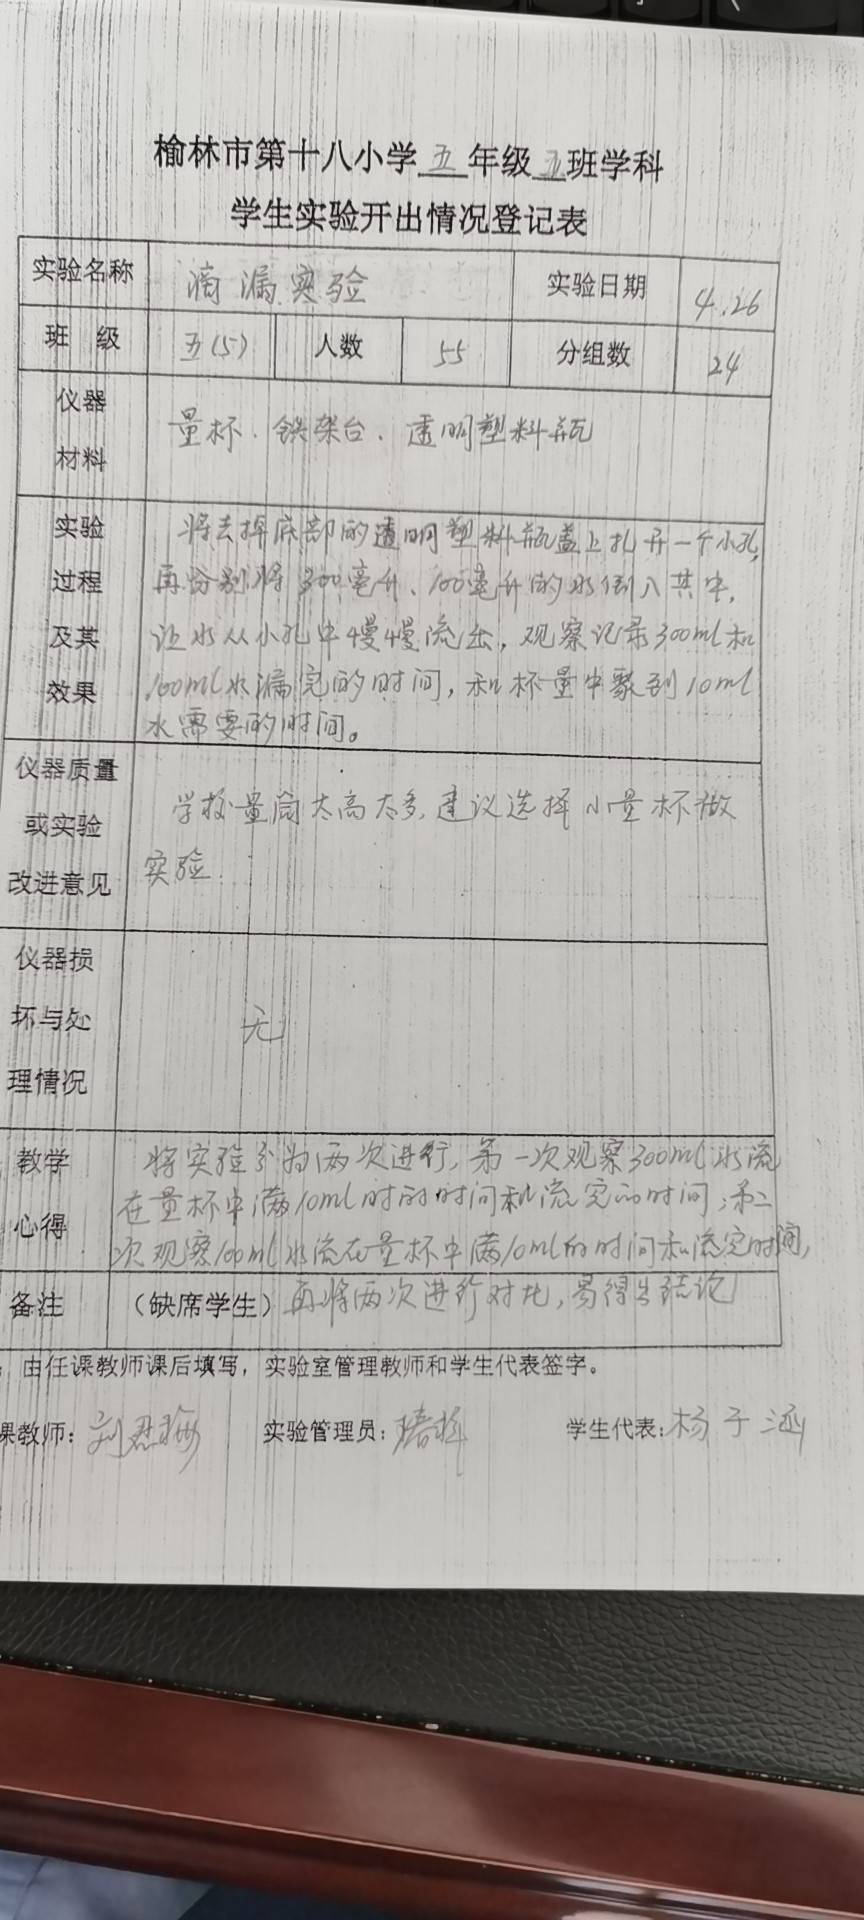 榆林市第十八小学五年级五班学科
学生实验开出情况登记表
实验名称 滴漏实验 实验日期 4.26
班 级 五(5) 人数 55 分组数 24
仪器
材料
量杯、铁架台、透明塑料瓶
实验
过程
及其
效果
将去掉底部的透明塑料瓶盖上扎开一个小孔,
再分别将300毫升、100毫升的水倒入其中,
让水从小孔中慢慢流出,观察记录300ml和
100ml水漏完的时间,和杯量中聚到10ml
水需要的时间。
仪器质量
或实验
改进意见
学校量筒太高太多,建议选择小量杯做
实验.
仪器损
坏与处
理情况
无
教学
心得
将实验分为两次进行,第一次观察300ml水流
在量杯中满10ml时的时间和流完的时间;第二
次观察100ml水流在量杯中满10ml的时间和流完时间,
备注 (缺席学生) 再将两次进行对比,易得出结论
由任课教师课后填写,实验室管理教师和学生代表签字。
课教师: 实验管理员: 学生代表:杨子涵